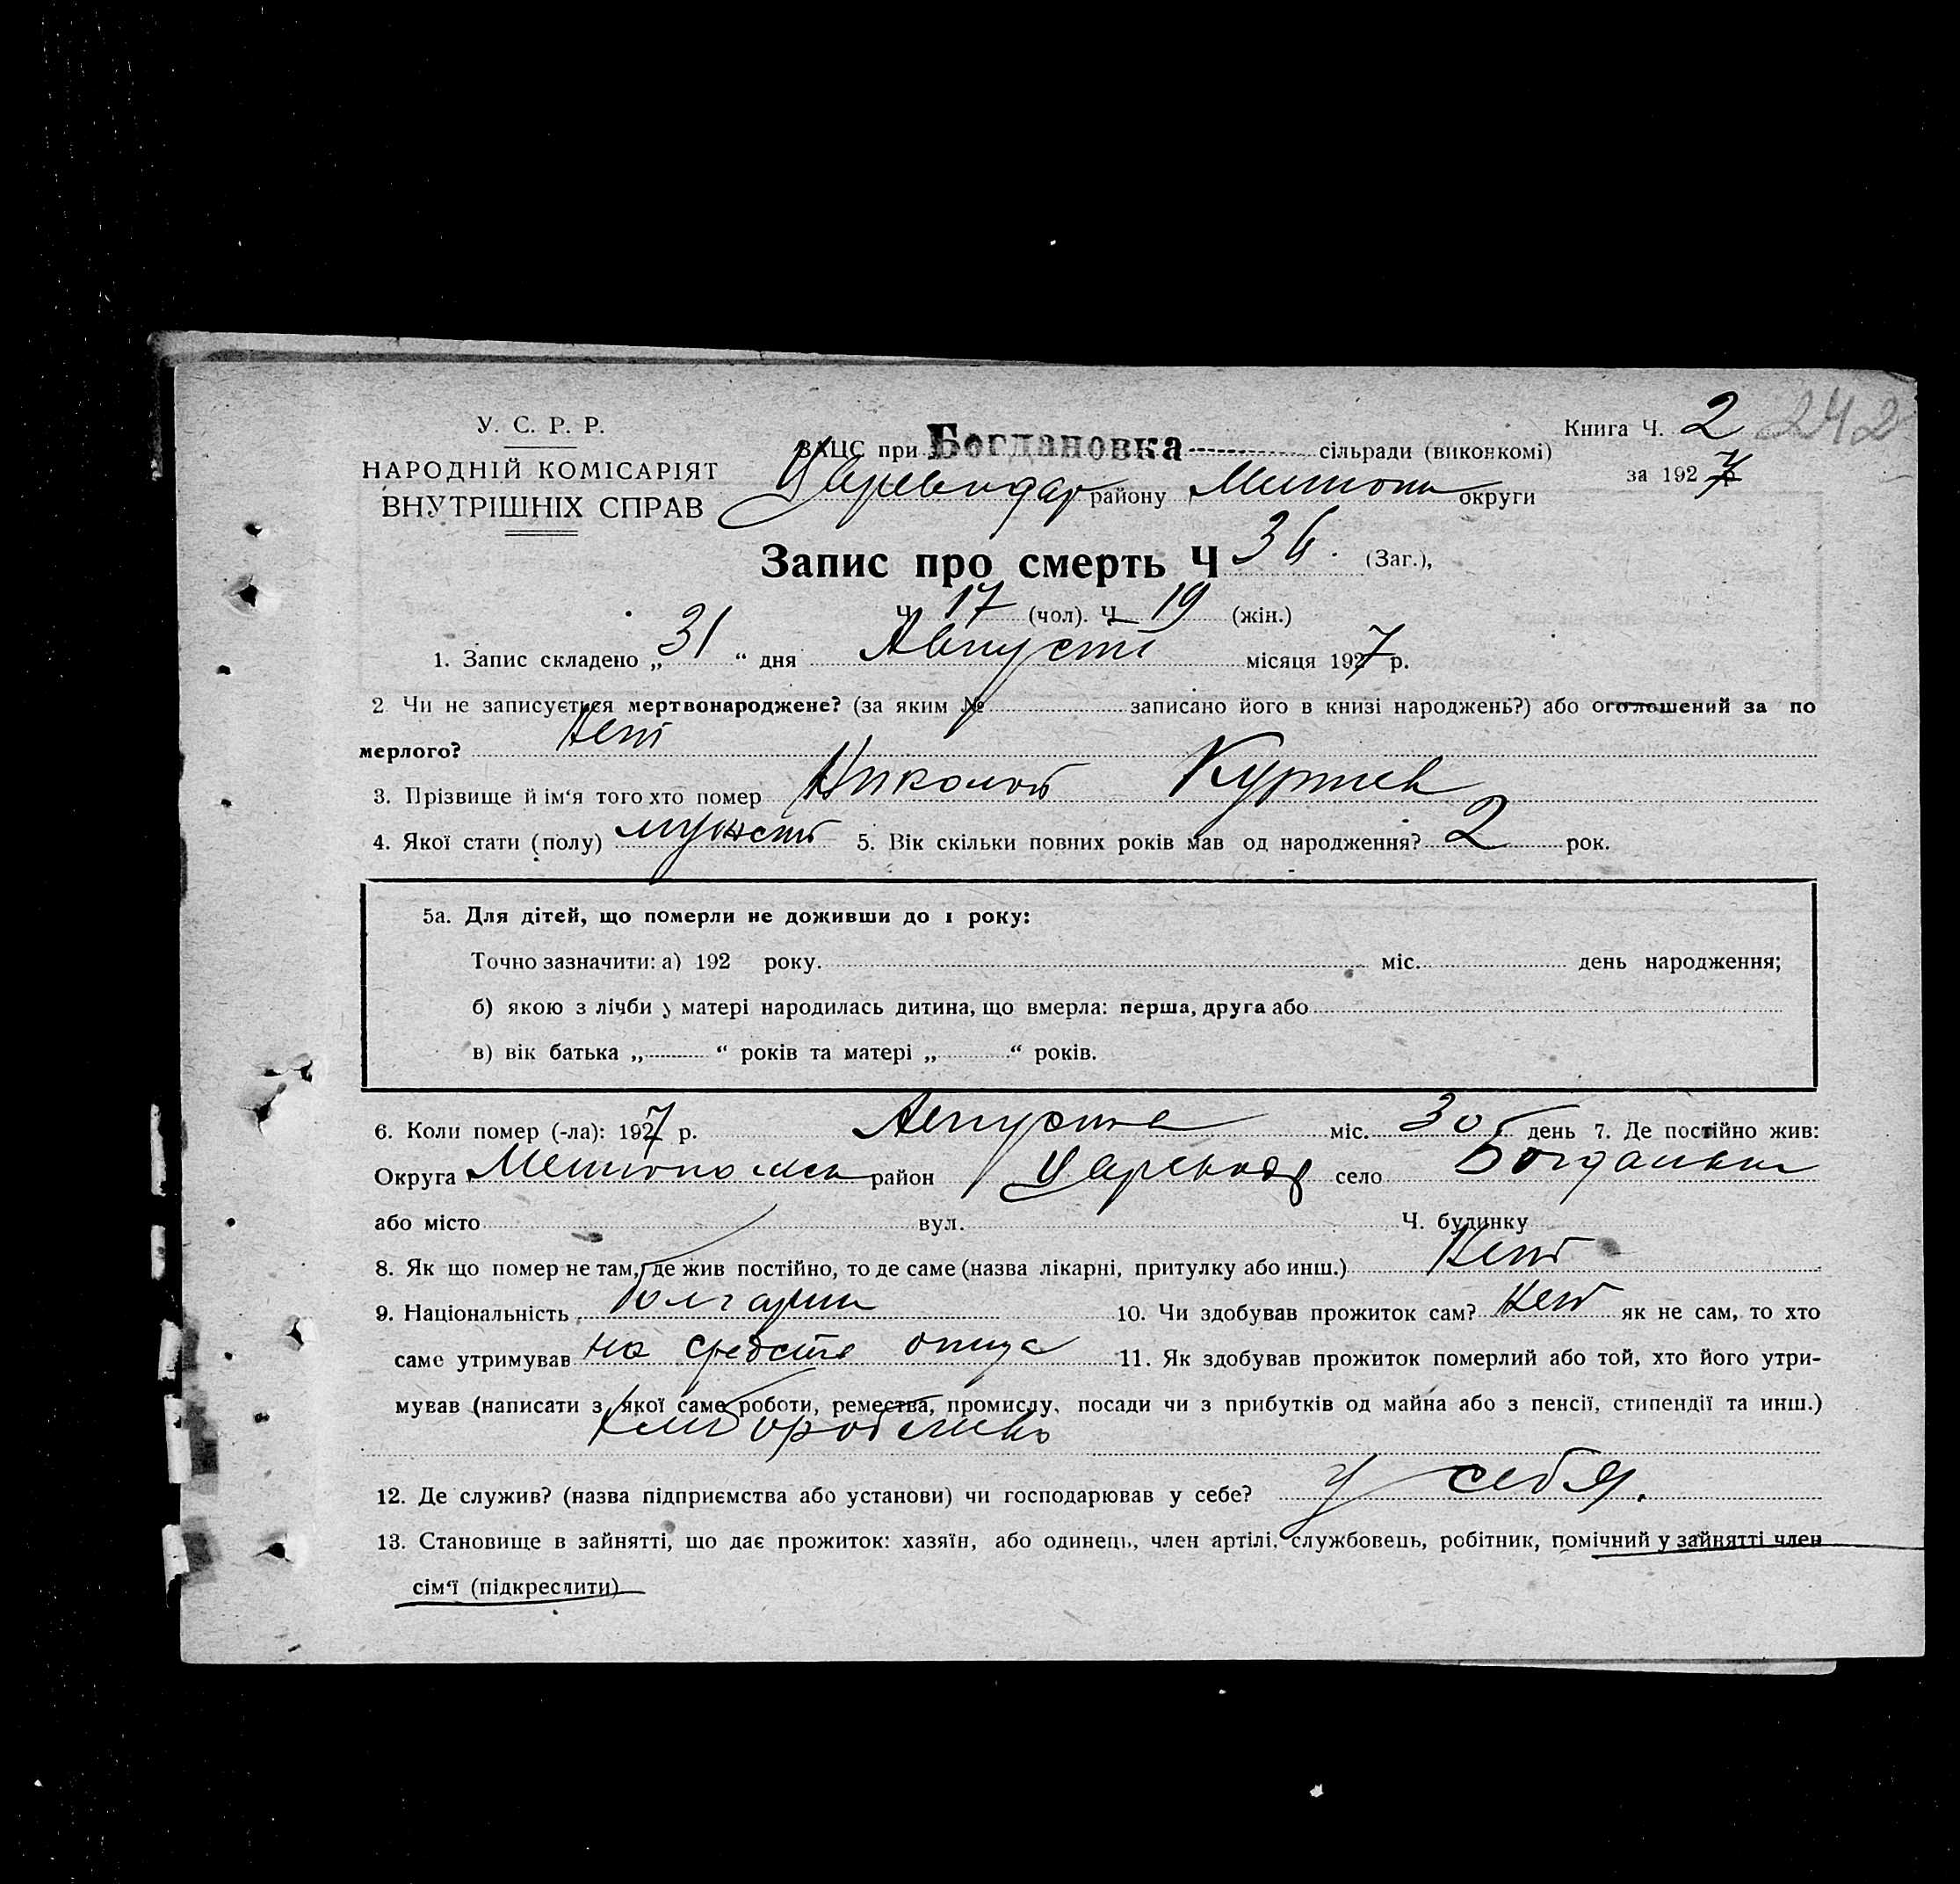 У. С. Р. Р.
НАРОДНІЙ КОМІСАРІЯТ
ВНУТРІШНІХ СПРАВ
Книга Ч. 2 242
за 1927
ЗАЦС при Богдановка сільради (виконкомі)
району округи
Запис про смерть Ч 36. (Заг.),
Ч 17 (чол). Ч 19 (жін.)
1. Запис складено „31“ дня Август місяця 1927 р.
2 Чи не записується мертвонароджене? (за яким № записано його в книзі народжень?) або оголошений за по
мерлого? Нет
3. Прізвище й ім‘я того хто помер Николай Куртев
4. Якої стати (полу) 5. Вік скільки повних років мав од народження? 2 рок.
5а. Для дітей, що померли не доживши до 1 року:
Точно зазначити: а) 192 року. міс. день народження;
б) якою з лічби у матері народилась дитина, що вмерла: перша, друга або
в) вік батька „ “ років та матері „ “ років.
6. Коли помер (-ла): 1927 р. Августа міс. 30 день 7. Де постійно жив:
Округа район село
або місто вул. Ч. будинку
8. Як що помер не там, де жив постійно, то де саме (назва лікарні, притулку або инш.) Нет
9. Національність Болгарин 10. Чи здобував прожиток сам? Нет як не сам, то хто
саме утримував на средства отца 11. Як здобував прожиток померлий або той, хто його утри-
мував (написати з якої саме роботи, ремества, промислу, посади чи з прибутків од майна або з пенсії, стипендії та инш.)
12. Де служив? (назва підприємства або установи) чи господарював у себе? У себя.
13. Становище в зайнятті, що дає прожиток: хазяїн, або одинець, член артілі, службовець, робітник, помічний у зайнятті член
сім‘ї (підкреслити)